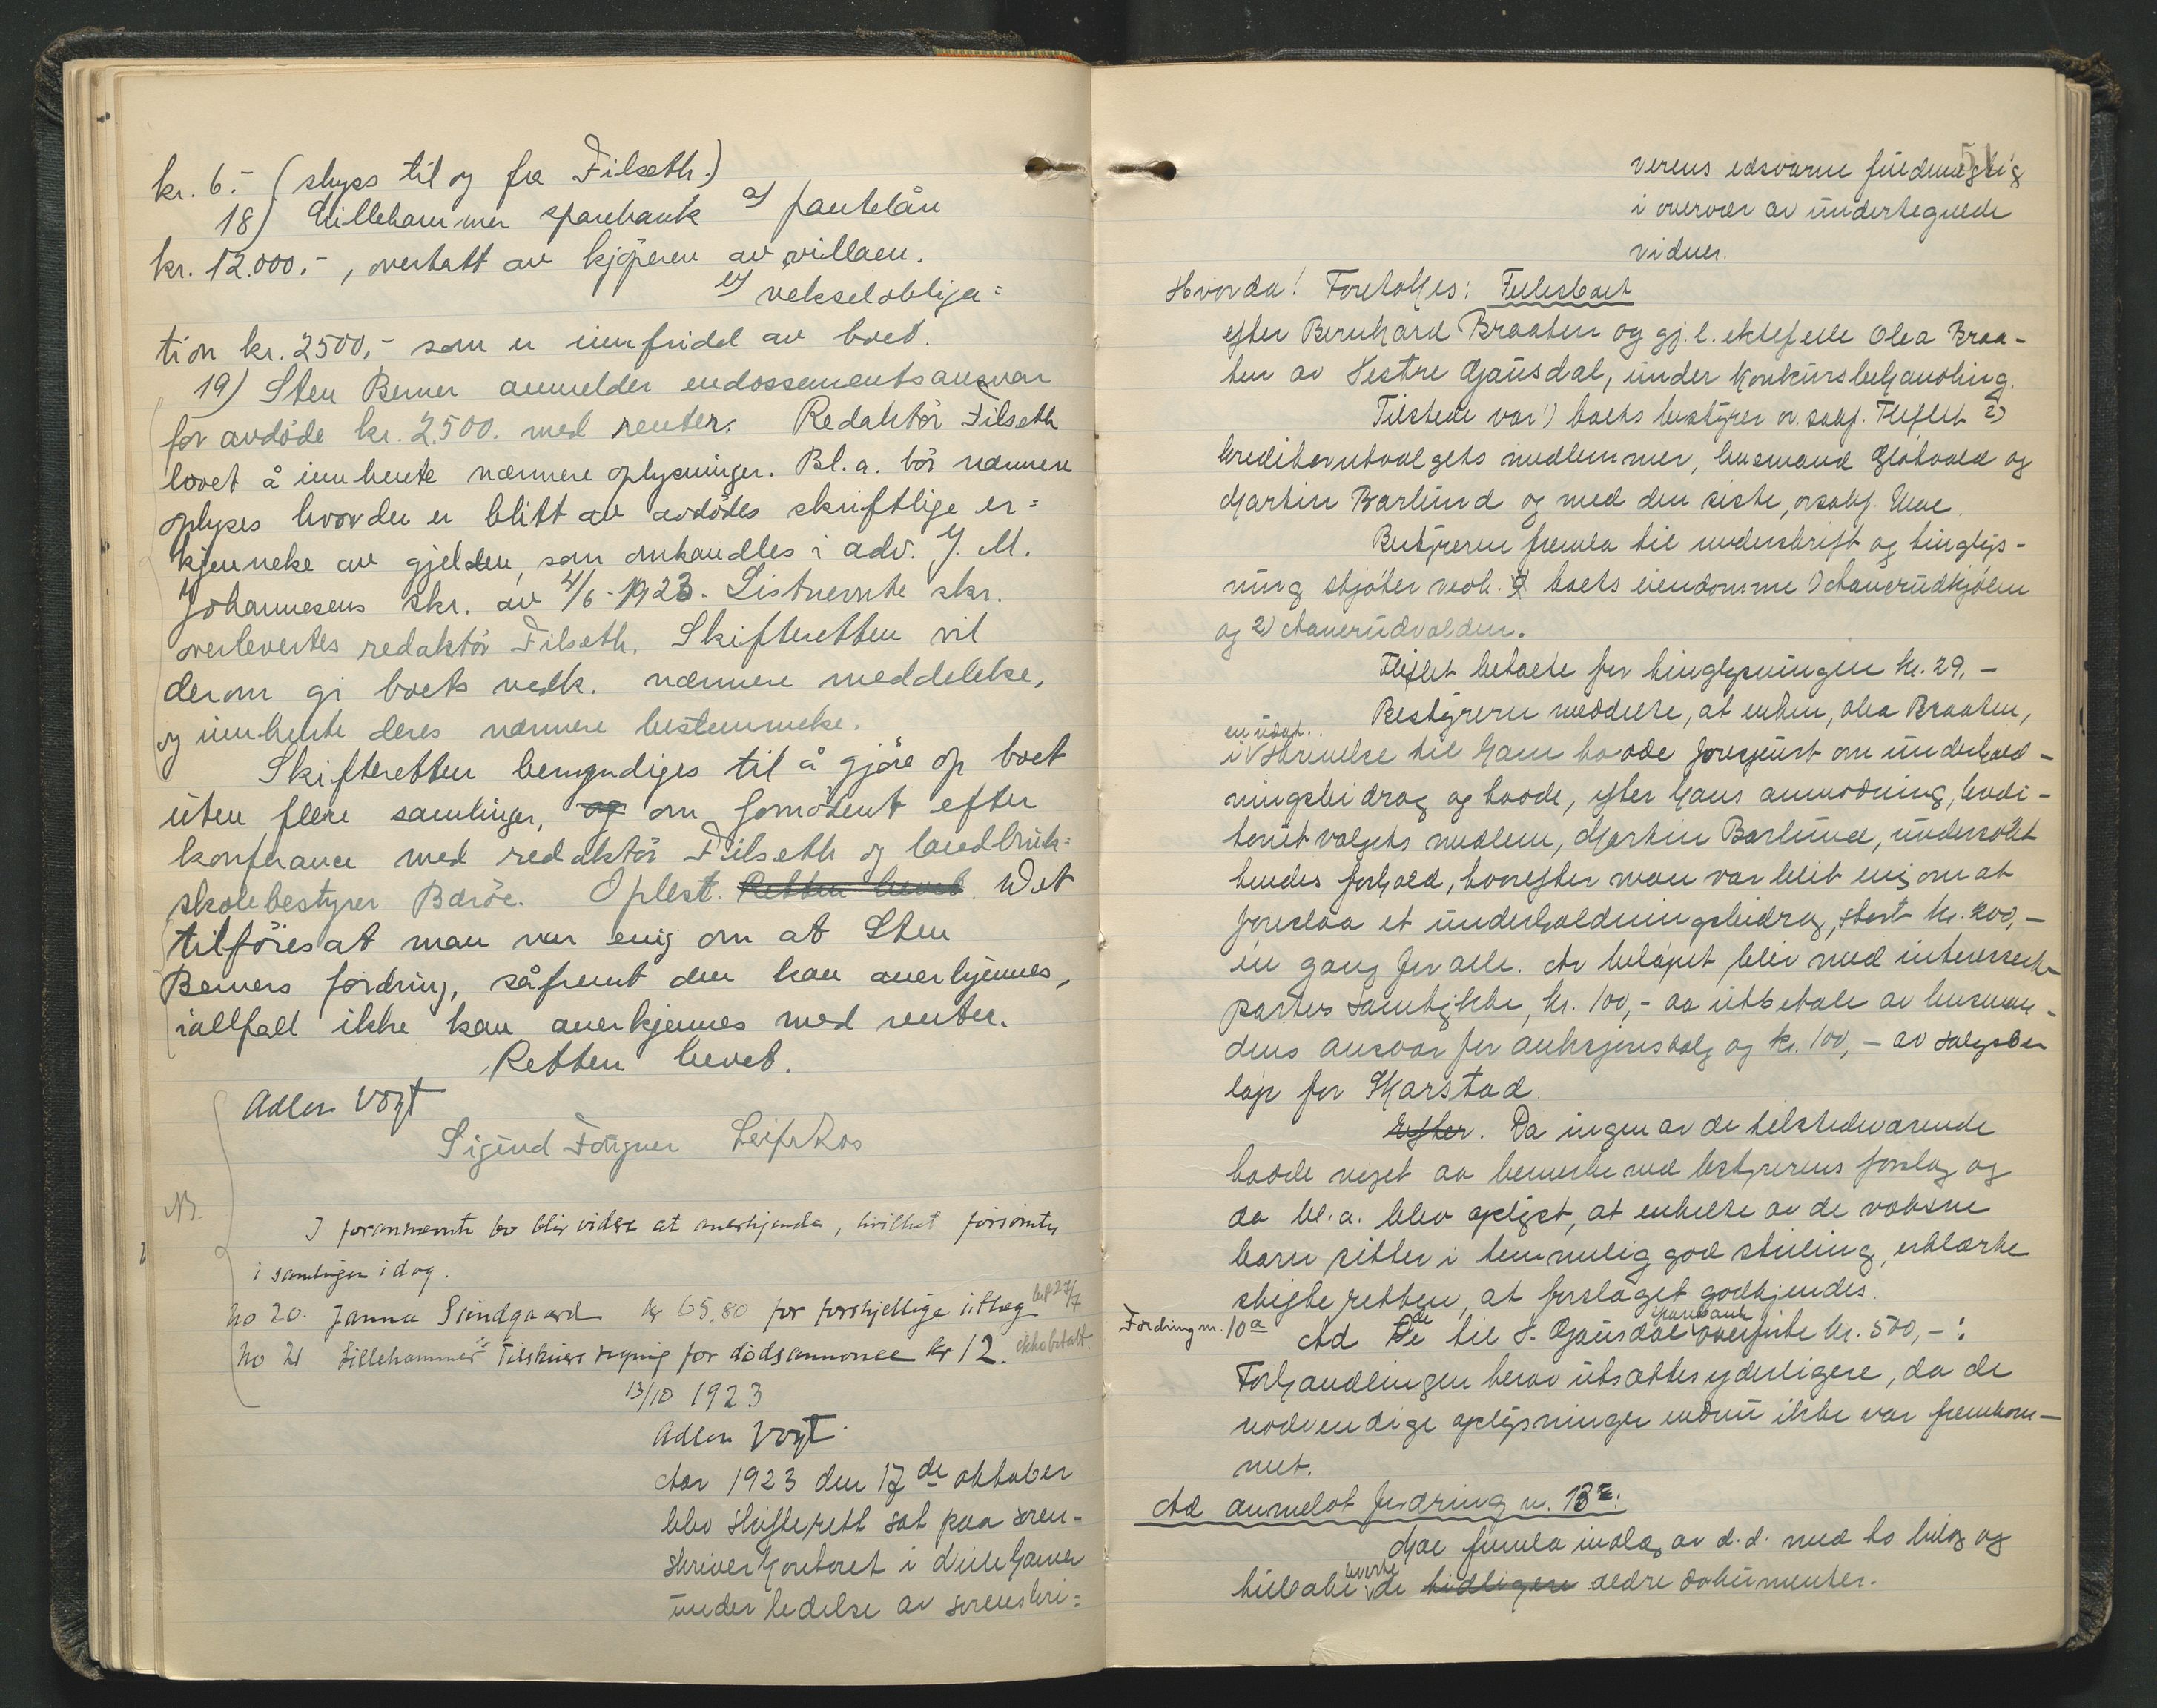 kr. 6.- (skyss til og fra Filseth.)
18) Lillehammer sparebank a) pantelån
kr. 12.000.-, overtatt av kjøperen av villaen.
b) vekselobliga=
tion kr. 2500,- som er innfridd av boet.
19) Sten Berner anmelder endossementsansvar
for avdöde kr. 2.500. med renter. Redaktör Filseth
lovet å innhente nærmere oplysninger. Bl. a. bör nærmere
oplyses hvor der er blitt av avdödes skriftlige er=
kjennelse av gjelden, som omhandles i adv. J. M.
Johannesens skr. av 4/6-1923. Sistnevnte skr.
overlevertes redaktör Filseth. Skifteretten vil
derom gi boets vedk. nærmere meddelelse,
og innhente deres nærmere bestemmelse.
Skifteretten bemyndiges til å gjöre op boet
uten flere samlinger, og om fornödent efter
konferance med redaktör Filseth og landbruk=
skolebestyrer Baröe. Oplest. Retten hevet. Det
tilföres at man var enig om at Sten
Berners fordring, såfremt den kan anerkjennes,
iallfall ikke kan anerkjennes med renter.
Retten hevet.
Adler Vogt
Sigurd Fougner Leif Roos
NB.
I forannevnte bo blir videre at anerkjende, hvilket forsömtes
i samlingen idag.
No 20. Janna Sundgaard kr 65,80 for forskjellige utlæg
No 21 Lillehammer Tilskuers regning for dödsannonce kr 12. ikke betalt.
13/10 1923
Adler Vogt
Aar 1923 den 17de oktober
blev skifterett sat paa soren-
skriverkontoret i Lillehamer
under ledelse av sorenskri=
51
verens edsvorne fuldmegtig
i overvær av undertegnede
vidner.
Hvorda! Foretokes: Fellesboet
efter Bernhard Braaten og gj. l. ektefelle Olea Braa-
ten av Vestre Gausdal, under konkursbehandling.
Tilstede var 1) boets bestyrer o. sakf. Fliflet 2)
kreditorutvalgets medlemmer, lensmand Gløtvold og
Martin Barlund og med den siste, o.sakf. Moe.
Bestyreren fremla til underskrift og tinglys-
ning skjøter vedk. boets eiendomme 1) Aanerudkjølen
og 2) Aanerudvolden.
Fliflet betalte for tinglysningen kr. 29,-
Bestyreren meddelte, at enken, Olea Braaten,
en udat..
i skrivelse til ham hadde forespurt om underhold-
ningsbidrag og hadde, efter hans anmodning, kredi-
torutvalgets medlem, Martin Barlund, undersøkt
hendes forhold, hvorefter man var blit enig om at
foreslaa et underholdningsbidrag, stort kr. 200,-
én gang for alle. Av beløpet blev med interessert
parters samtykke, kr. 100,- aa utbetale av lensman-
dens ansvar for auksjonssalg og kr. 100,- av salgsbe
løp for Skarstad.
Efter. Da ingen av de tilstedeværende
hadde noget aa bemerke ved bestyrerens forslag og
da bl. a. blev oplyst, at enkelte av de voksne
barn sitter i temmelig god stilling, erklærte
skifteretten, at forslaget godkjendes.
Fordring nr. 10a Ad De de til V. Gausdal sparebank overførte kr. 500,-:
Forhandlingen herav utsattes yderligere, da de
nødvendige oplysninger endnu ikke var fremkom-
met.
Ad anmeldt fordring nr. 13:
Moe fremla indlæg av d.d. med to bilag og
tilbake leverte de tidligere ældre dokumenter.